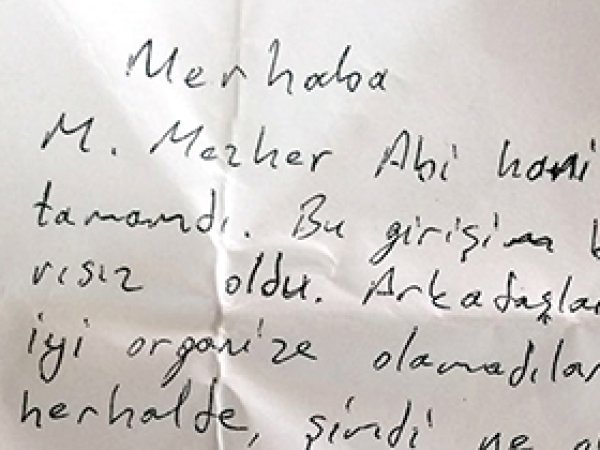 Merhaba
M. Mezher Abi hani
tamamdı. Bu girişim
rısız oldu. Arkadaşlar
iyi organize olamadılar
herhalde, şimdi ne